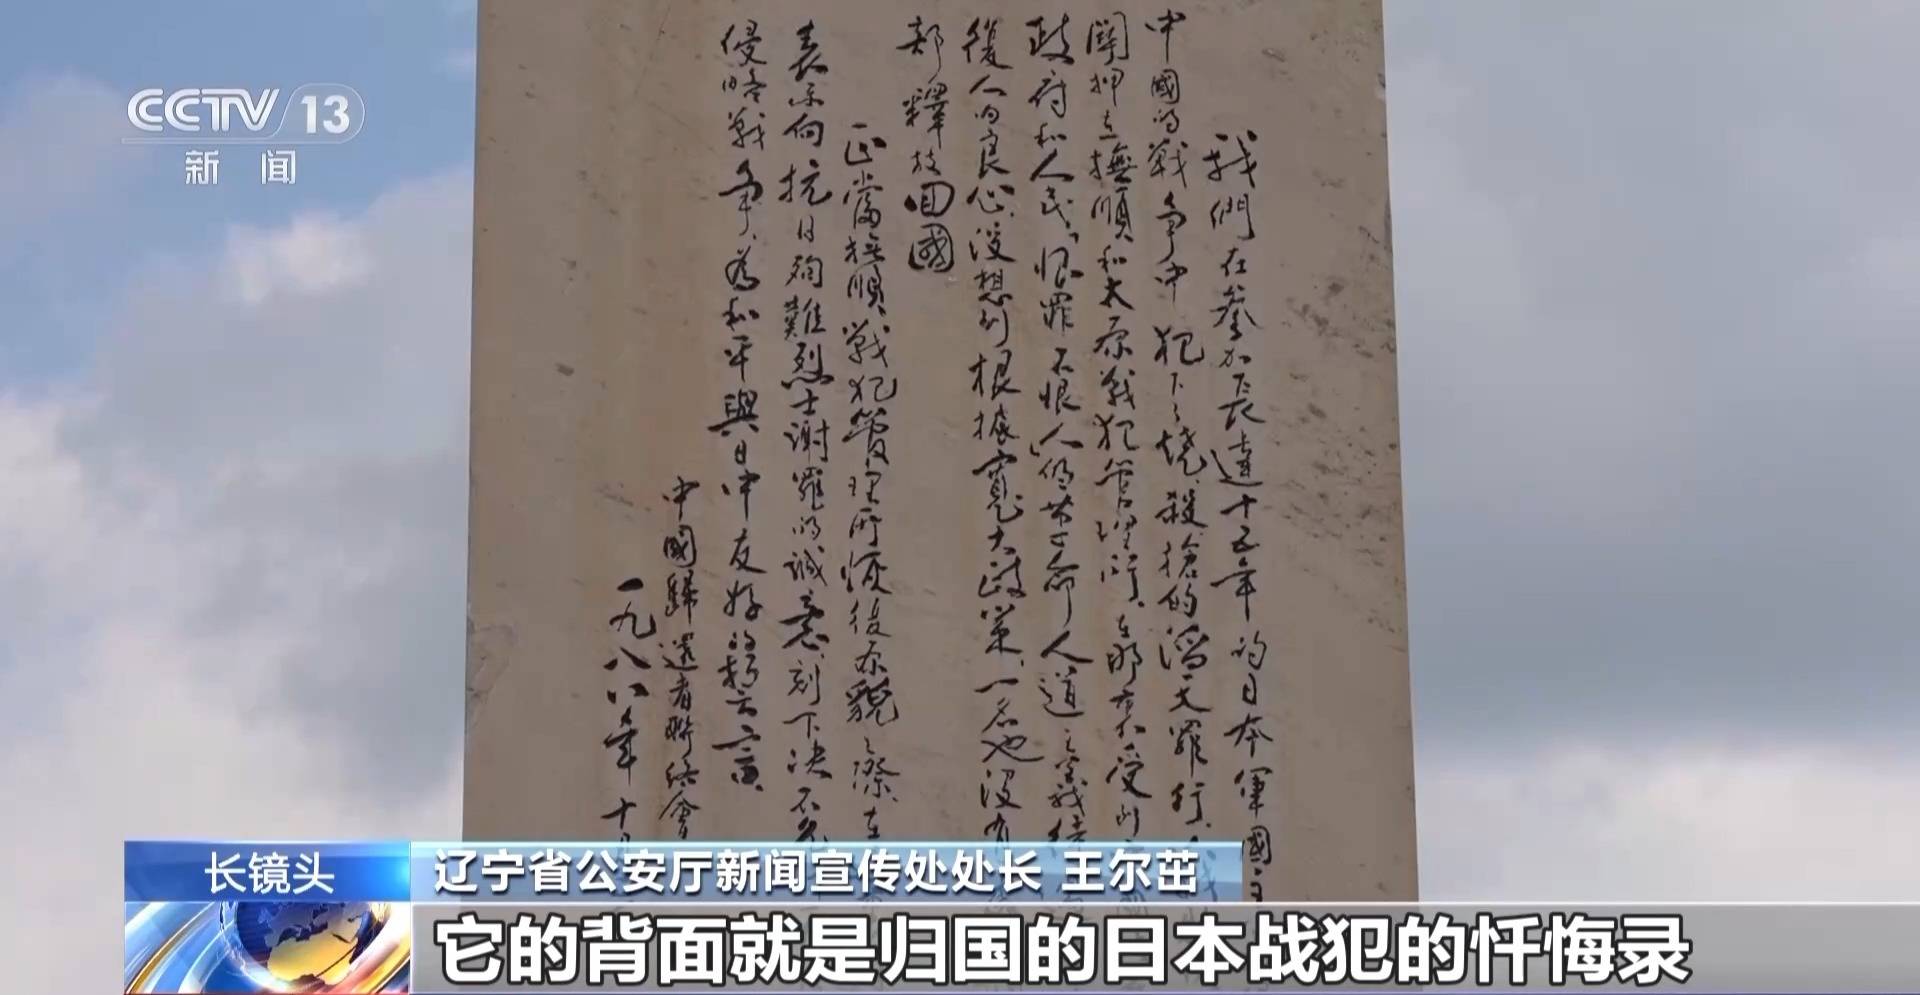 CCTV 13
新闻
我們在參加長達十五年的日本軍國主
中國的戰爭中犯下了燒、殺、搶的滔天罪行、
關押在撫順和太原戰犯管理所、在那裏受
政府和人民、「恨罪不恨人」的革命人道主義待
復人的良心、沒想到根據寬大政策、一名也沒有
都釋放回國
正當撫順戰犯管理所恢復原貌之際、在
表示向抗日殉難烈士謝罪的誠意、刻下決不
侵略戰爭、為和平與日中友好的誓言、
中國歸還者聯絡會
一九八八年十月
长镜头
辽宁省公安厅新闻宣传处处长 王尔茁
它的背面就是归国的日本战犯的忏悔录